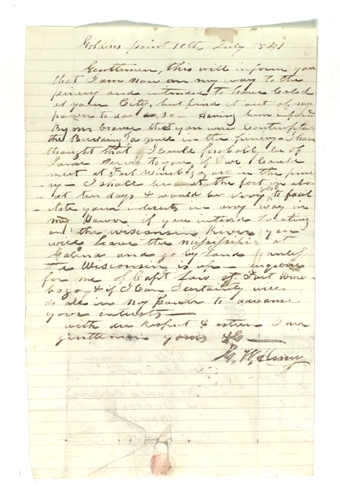 point 10th July 1841
Gentlemen, this will inform you
that I am now on my way to the
pinery and intended to have called
at your City, but find it out of my
power to do so. Having been informed
By Mr that you were
the Building a mill in the pinery I have
thought that I Could probably be of
Some Service to you, if we Could
meet at Fort Winebago or in the pine
ry — I shall be at the fort in abo
ut ten days & would be very to facil
itate your interests in any way in
my Power if you intend locating
on the Wisconsin River you
will leave the Mississippi at
Galena and go by land
the Wisconsin is up enquire
for me of Capt Low at Fort Wine
bago & if I Can I certainly will
do all in my power to advance
your interests —
with due respect & esteem I am
gentlemen yours &c —